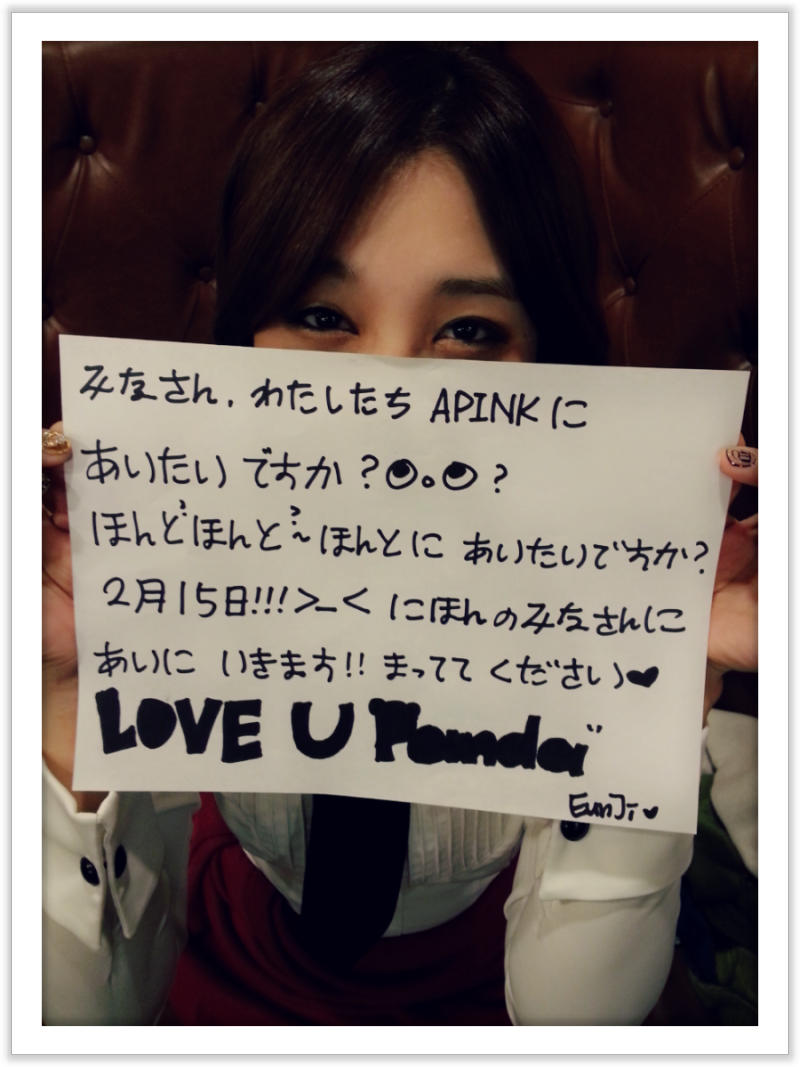 みなさん、わたしたち APINK に
あいたい ですか ? ⊙。⊙ ?
ほんと?ほんと?〜ほんとに あいたいですか?
2月15日!!! >_< にほんのみなさんに
あいに いきます!! まってて ください♥
LOVE U Panda"
EunJi♥